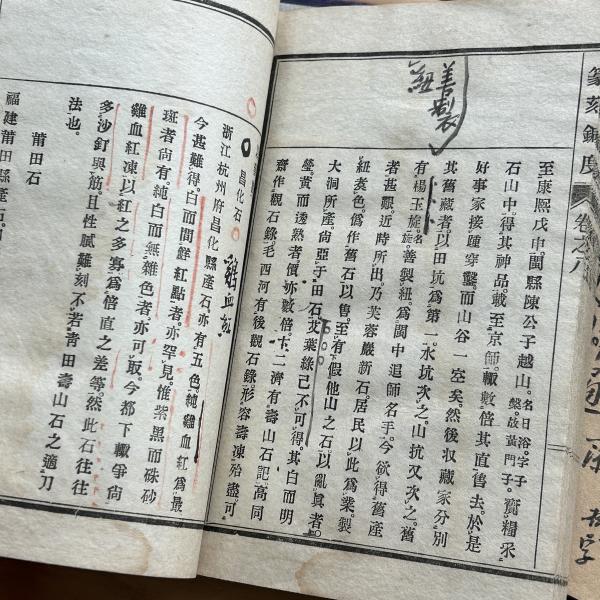 篆刻鍼度
卷之八
至康熙戊申。閩縣陳公子越山。名日浴。字子槃。啟黃門子。賫糧采
石山中。得其神品。載至京師。輙數倍其直售去。於是
好事家接踵穿鑿。而山谷一空矣。然後収藏家分別
其舊藏者。以田坑爲第一。水坑次之。山坑又次之。舊
有楊玉旋。名璇。善製紐。爲閩中退師名手。今欲得舊產
者甚艱。近時所出。乃芙蓉巖新石。居民以此爲業。製
紐染色。僞作舊石以售。至有假他山之石以亂真者。
大洞所產。尙亞于田石。艾葉綠已不可得。其白而明
瑩。黃而透熟者。價亦數倍。卞二濟有壽山石記。高固
齋作觀石錄。毛西河有後觀石錄。形容壽凍殆盡。可
善製
紐
昌化石
浙江杭州府昌化縣產石。亦有五色。純雞血紅爲最。
今甚難得。白而間鮮紅點者。亦罕見。惟紫黑而硃砂
斑者尙有。純白而無雜色者。亦可取。今都下輙爭尙
雞血紅凍。以紅之多寡。爲倍直之差等。然此石往往
多沙釘與筋。且性膩難刻。不若靑田壽山石之適刀
法也。
雞血紅
莆田石
福建莆田縣產石。